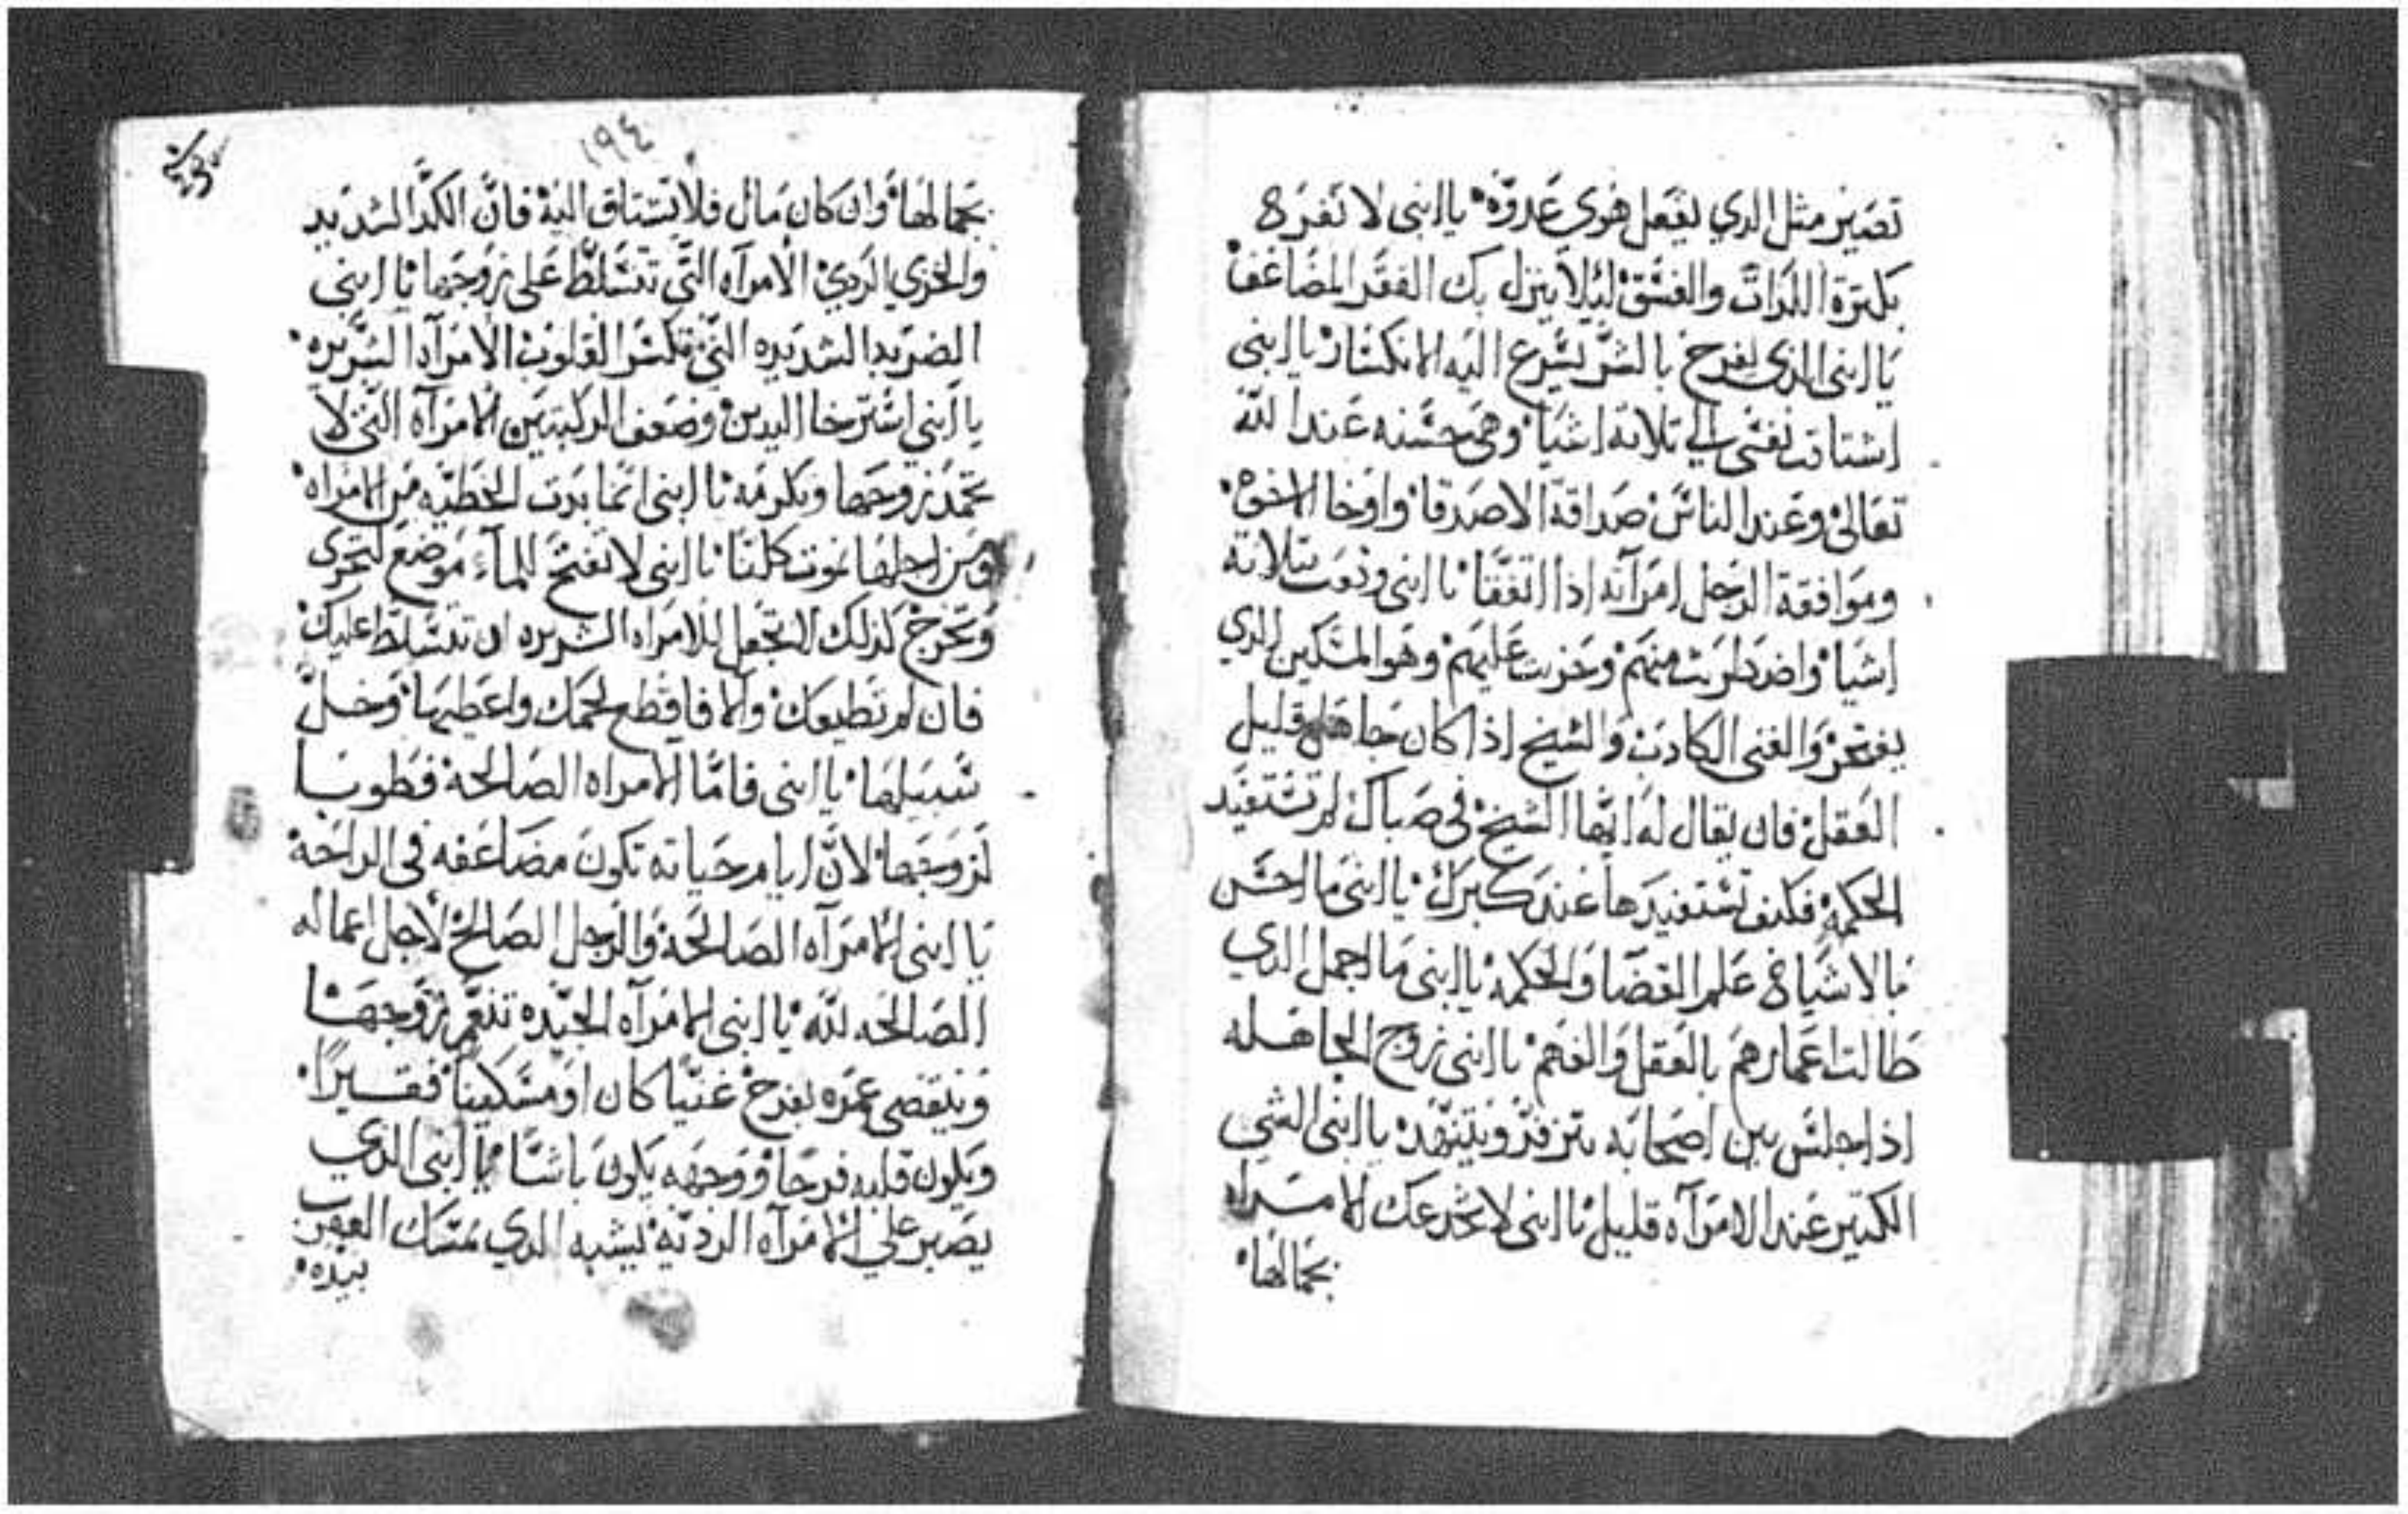 تصير مثل الدي يفعل هوي عدوه يا ابني لا تفرح
بكترة اللدات والفسق ليلا ينزل بك الفقر المضاعف
يا ابني الدي يفرح بالشر يسرع اليه الانكسار يا ابني
اشتاقت نفسي الي تلاتة اشيا وهي حسنه عند الله
تعالي وعند الناس صداقة الاصدقا واوخا الاخوه
وموافقة الرجل امراته ادا اتفقا يا ابني تلاته
اشيا منهم وحزنت عليهم وهو المسكين الدي
يفتخر والغني الكادب والشيخ ادا كان جاهل قليل
العقل فان يقال له ايها الشيخ في صباك لم تستفيد
الحكمه فكيف تستفيدها عند كبرك يا ابني ما احسن
بالاشياخ علم القضا والحكمه يا ابني ما اجمل الدي
طالت اعمارهم بالعقل والفهم يا ابني زوج الجاهله
ادا جلس بين اصحابه يتزفر ويتنهد يا ابني الشي
الكتير عند الامرآه قليل يا ابني لا تخدعك الامراه
بجمالها
١٩٤
بجمالها وان كان مال فلا تشتاق اليه فان الكد الشديد
والخزي الردي الامرآه التي تتسلط علي زوجها يا ابني
الضربه الشديده التي تكسر القلوب الامرآه الشريره
يا ابني استرخا اليدين وضعف الركبتين الامرآه التي لا
تحمد زوجها وتكرمه يا ابني انما بدت الخطيه من الامراه
ومن اجلها نموت كلنا يا ابني لا تفتح للمآء موضع لتجري
وتخرج كدلك لا تجعل للامراه الشريره ان تتسلط عليك
فان لم تطيعك والا فاقطع لحمك واعطيها وخل
سبيلها يا ابني فاما الامراه الصالحة فطوبا
لزوجها لان ايام حياته تكون مضاعفه في الراحة
يا ابني الامرآه الصالحة والرجل الصالح لاجل اعماله
الصالحه لله يا ابني الامرآه الجيده تنعم زوجها
وينقضي عمره بفرح غنيا كان او مسكينا فقيرا
ويكون قلبه فرحا ووجهه يكون باشا يا ابني الدي
يصبر علي الامرآه الرديه يشبه الدي مسك العقرب
بيده